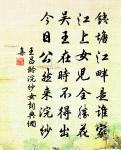 錢塘江畔是誰家
江上女兒全勝花
吳王在時不得出
今日公然來浣紗
王昌齡浣紗女詞典網
集